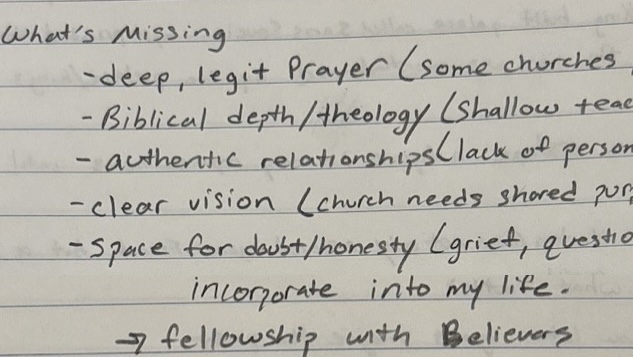 What's Missing
-deep, legit Prayer (some churches
- Biblical depth/theology (shallow teac
- authentic relationships (lack of person
- clear vision (church needs shared pur
- space for doubt/honesty (grief, questio
incorporate into my life.
→ fellowship with Believers